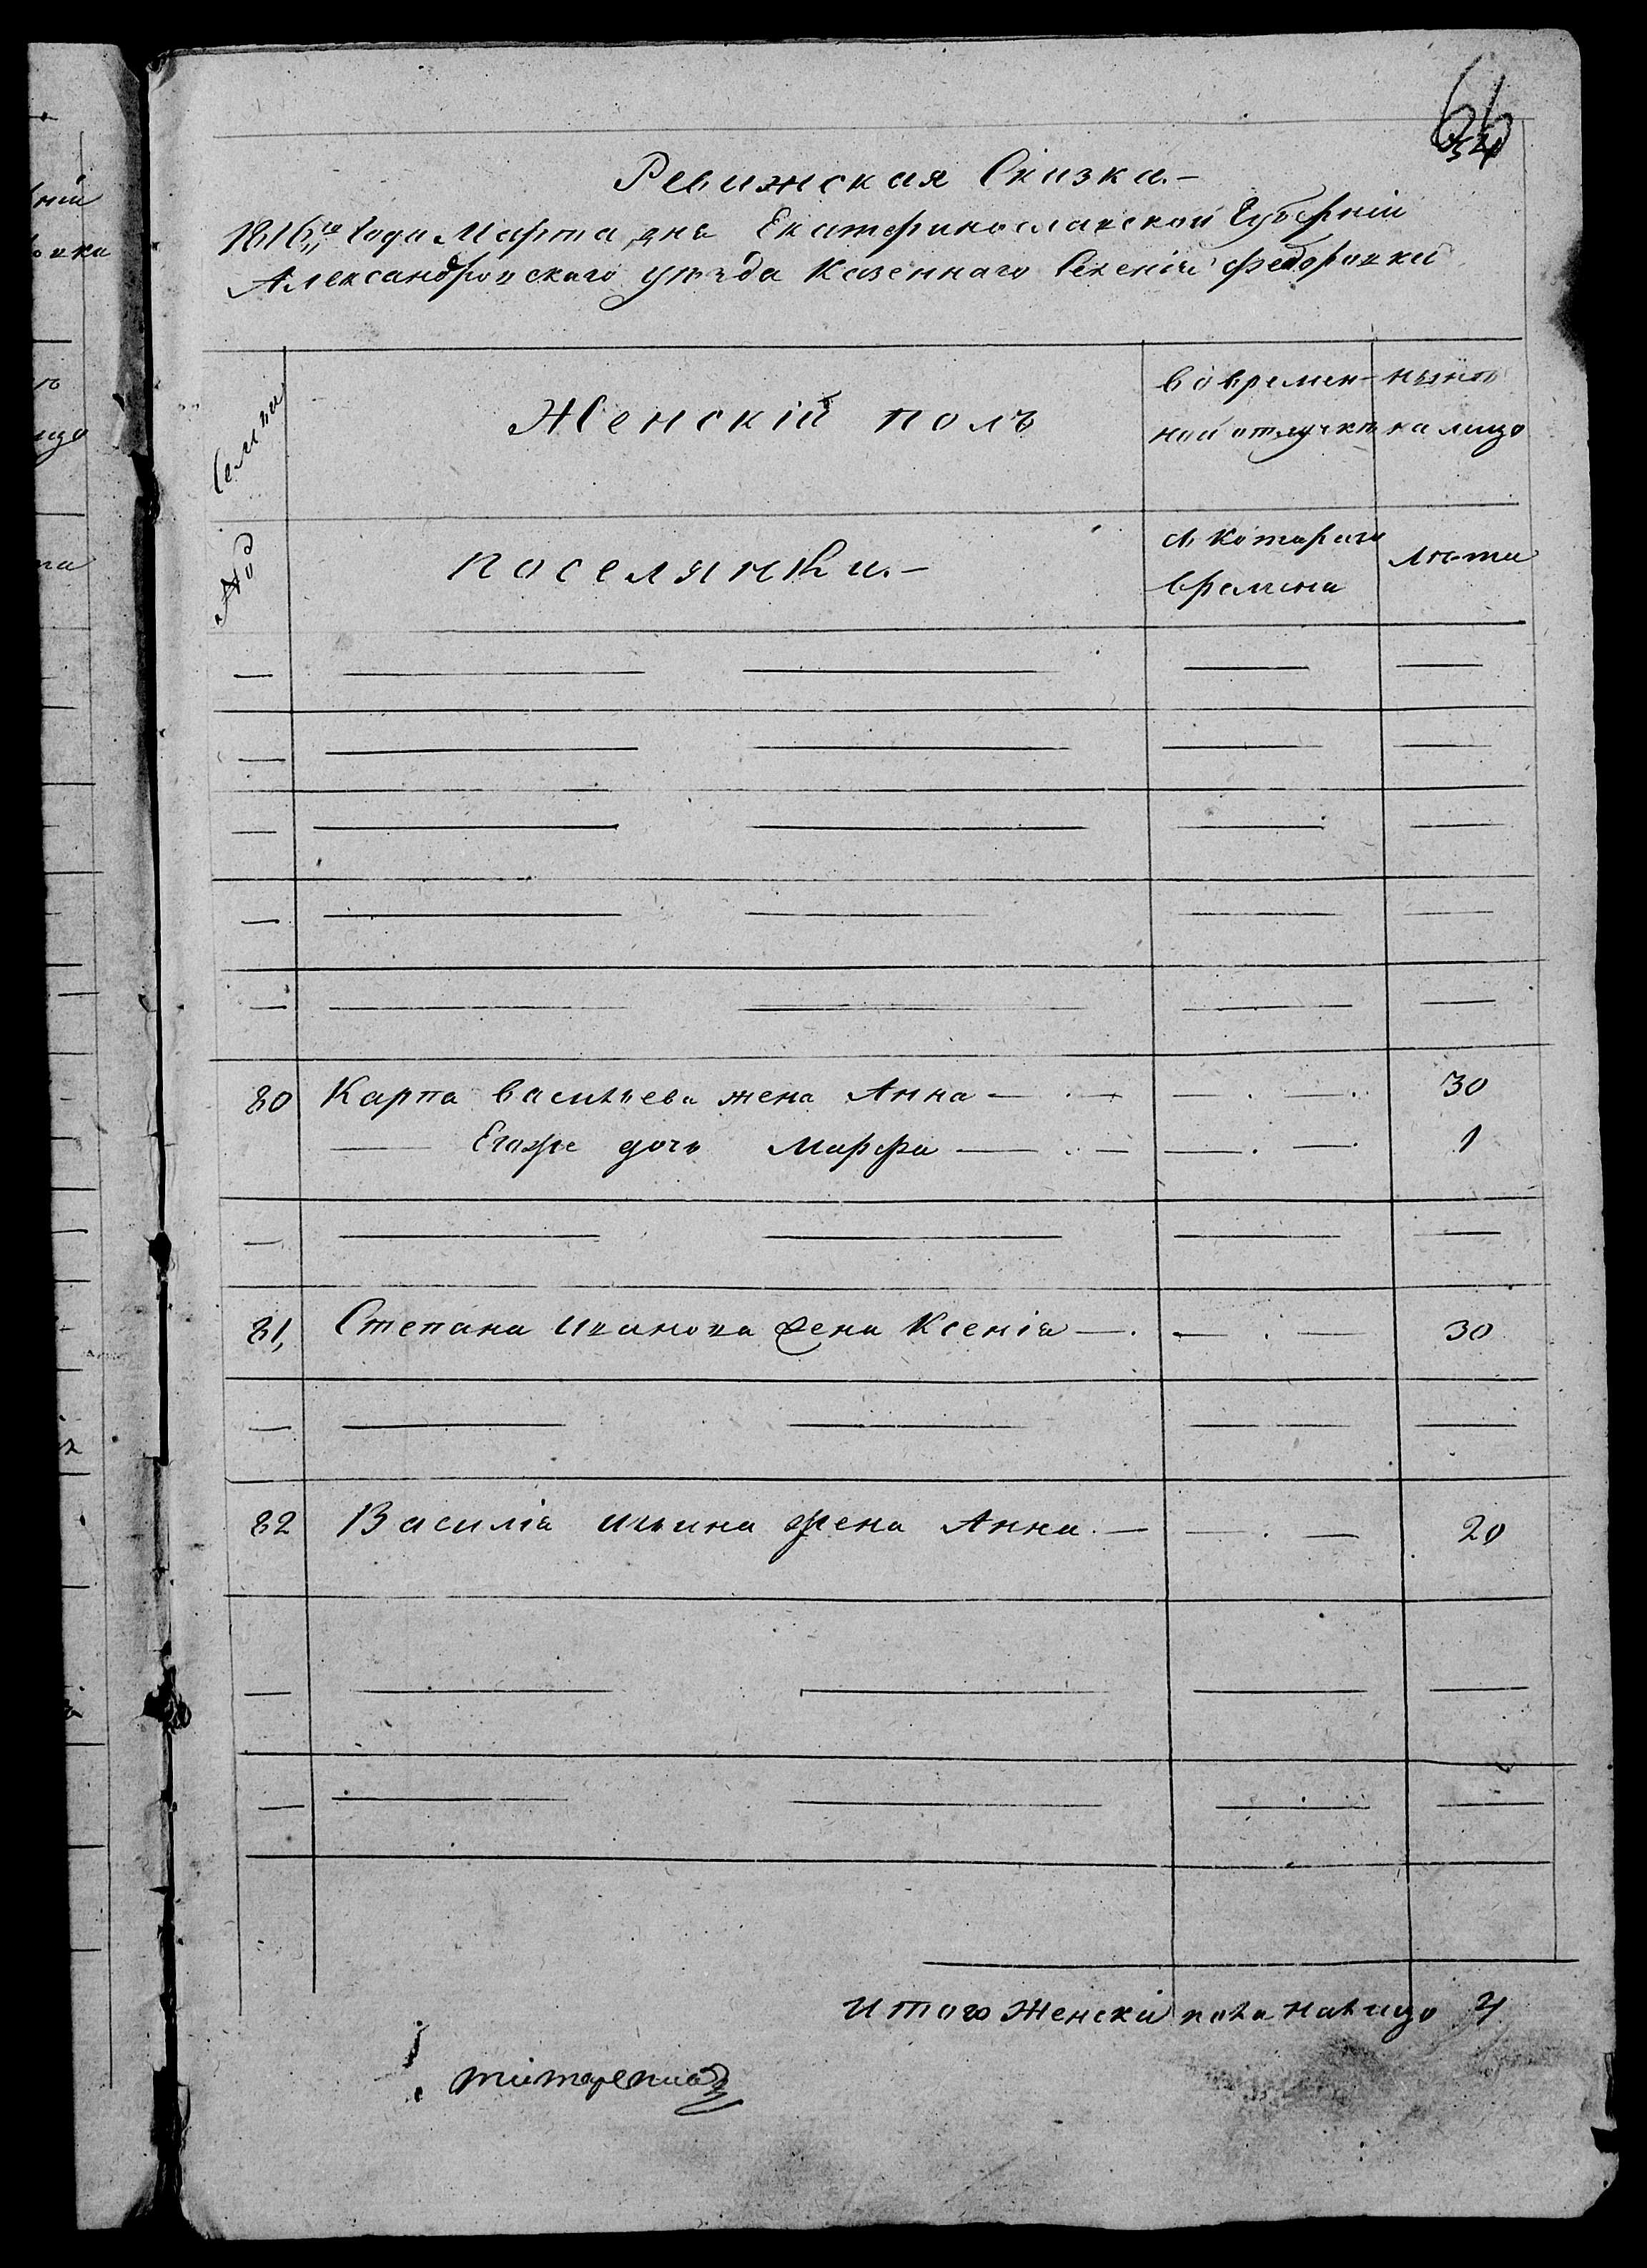 66
54
Ревижская Сказка.—
1816го Года Марта дня Екатеринославской Губерніи
Александровскаго уѣзда Казеннаго Селенія Федоровки
Семьи
№
Женскій полъ
во времен-
ной отлучкѣ
нынѣ
на лицо
поселянки.—
съ котораго
времена
лѣта
80 Карпа васильева жена Анна — — 30
— Егоже дочь Марфа — — 1
81, Степана иванова жена Ксенія — — 30
82 Василія ильина жена Анна — — 20
Итого Женска пола налицо 4